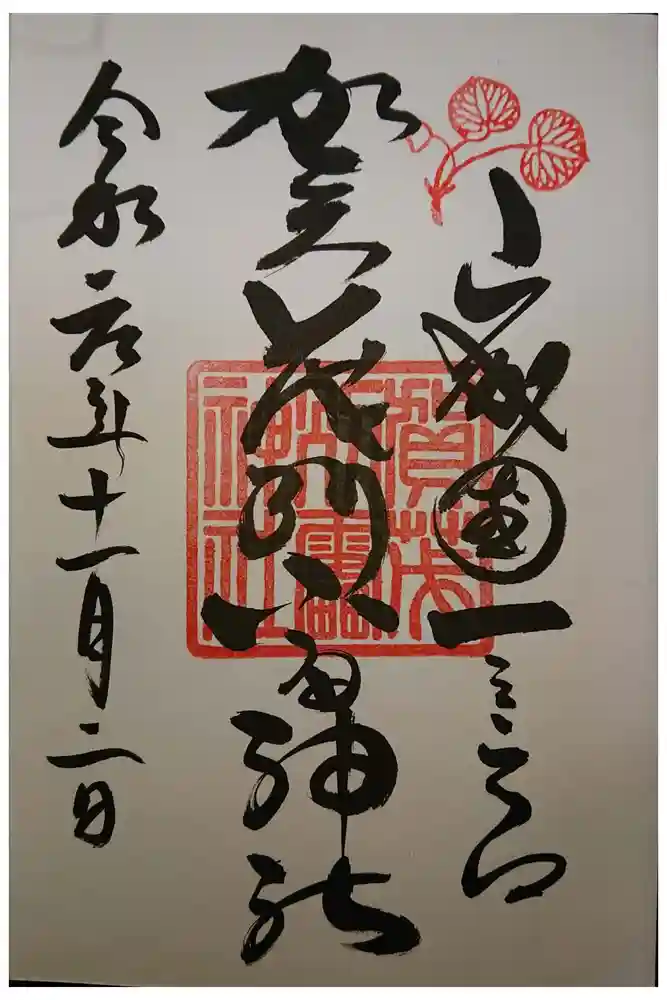 山城國一之宮
賀茂別雷神社
令和元年十一月二日
賀茂
別雷
神社